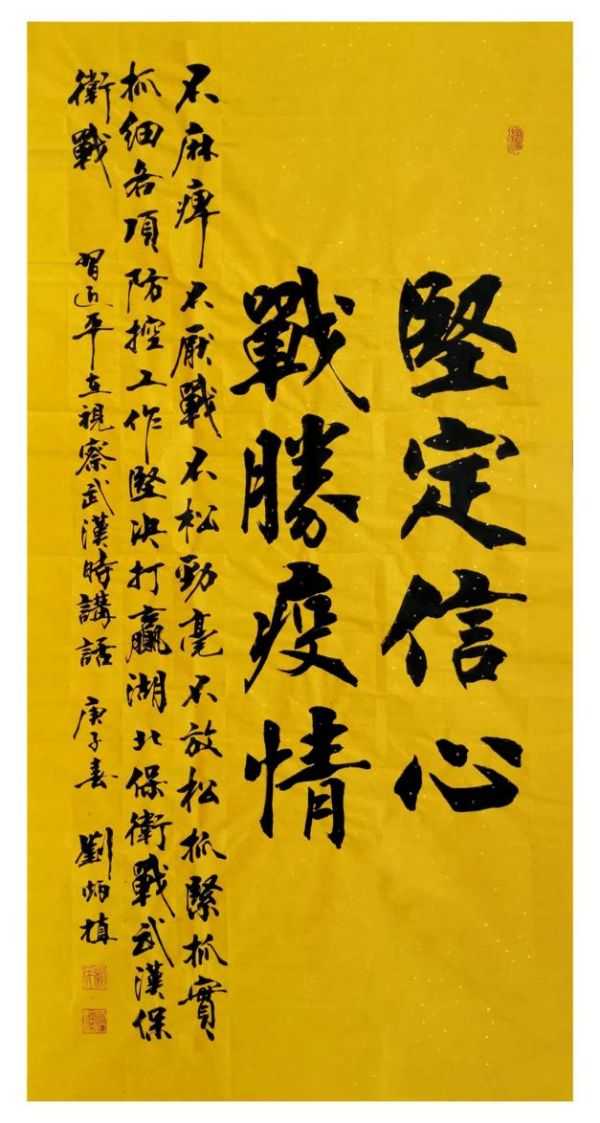 堅定信心
戰勝疫情
不麻痺不厭戰不松勁毫不放松抓緊抓實
抓細各項防控工作堅決打贏湖北保衛戰武漢保
衛戰
習近平在視察武漢時講話 庚子春 劉炳楨